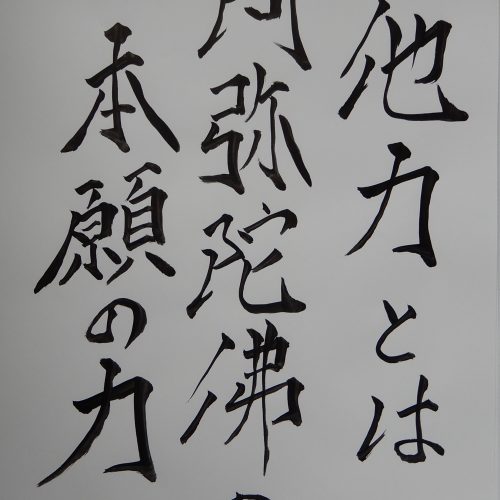 他力とは
阿弥陀佛の
本願の力